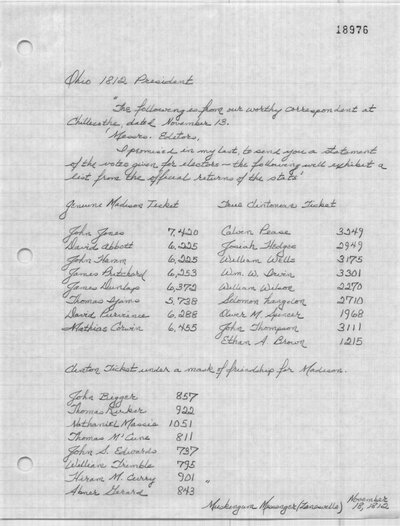 18976
Ohio 1812 President
"The following is from our worthy correspondent at
Chillicothe, dated November 13.
'Messrs. Editors,
I promised in my last, to send you a statement
of the votes given for electors — the following will exhibit a
list from the official returns of the state'
Genuine Madison Ticket True Clintonian Ticket
John Jones 7,420 Calvin Pease 3249
David Abbott 6,225 Josiah Hedges 2949
John Hamm 6,225 William Wells 3175
James Pritchard 6,253 Wm. W. Irwin 3301
James Dunlap 6,372 William Wilson 2270
Thomas Ijams 5,738 Solomon Langdon 2710
David Purviance 6,288 Oliver M. Spencer 1968
Mathias Corwin 6,455 John Thompson 3111
Ethan A Brown 1215
Clinton Ticket under a mask of friendship for Madison.
John Bigger 857
Thomas Kirker 922
Nathaniel Massie 1051
Thomas M'Cune 811
John S. Edwards 737
William Trimble 795
Hiram M. Curry 901 "
Abner Gerard 843
Muskingum Messenger (Zanesville) November
18, 1812